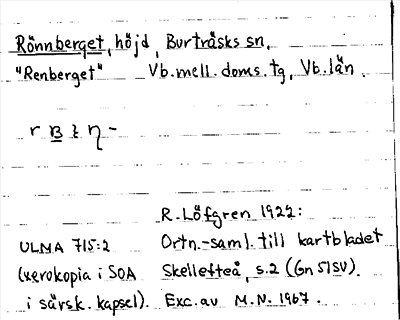 Rönnberget, höjd, Burträsks sn,
"Renberget" Vb. mell. doms. tg, Vb. län.
R. Löfgren 1922:
ULMA 715:2 Ortn.-saml. till kartbladet
(xerokopia i SOA Skellefteå, s.2 (Gn 51SV).
i särsk. kapsel). Exc. av M.N. 1967.